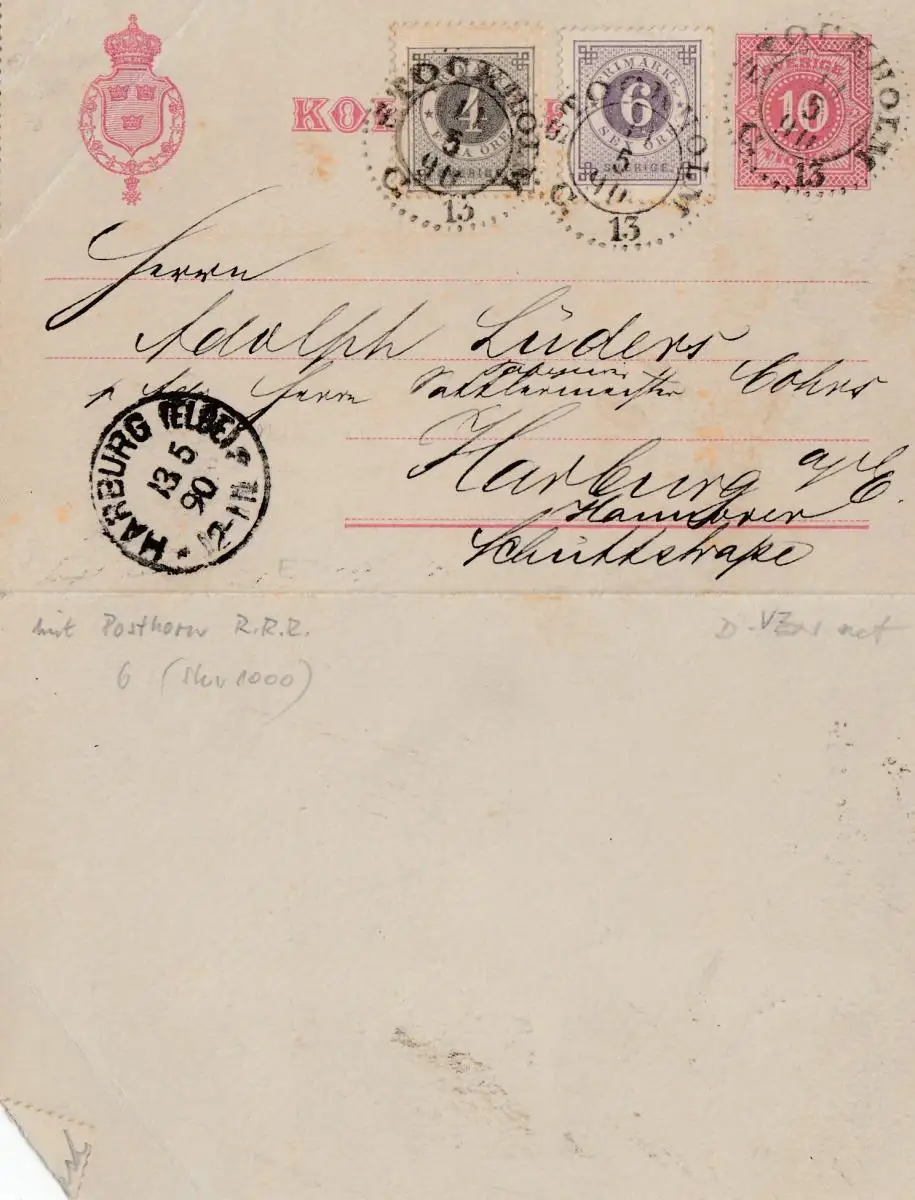 KO
4
SVERIGE
FRIMÄRKE
6
SEX ÖRE
SVERIGE
SVERIGE
10
STOCKHOLM
5
90
13
STOCKHOLM
5
90
13
STOCKHOLM
5
90
13
Herrn
Adolph Lüders
Herrn Sattlermeister Cohrs
Harburg a/E.
Hannover
Schüttstraße
HARBURG (ELBE)
13 5
90
12-1N
mit Posthorn R.R.R.
6 (Skr 1000)